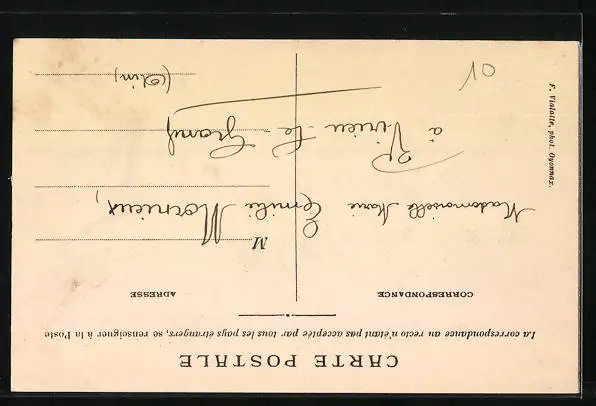 CARTE POSTALE
La correspondance au recto n'étant pas acceptée par tous les pays étrangers, se renseigner à la Poste
CORRESPONDANCE
ADRESSE
M
Mademoiselle Marie Emilie Mornieux,
à Virieu-le-Grand
(Ain)
F. Vialatte, phot. Oyonnax.